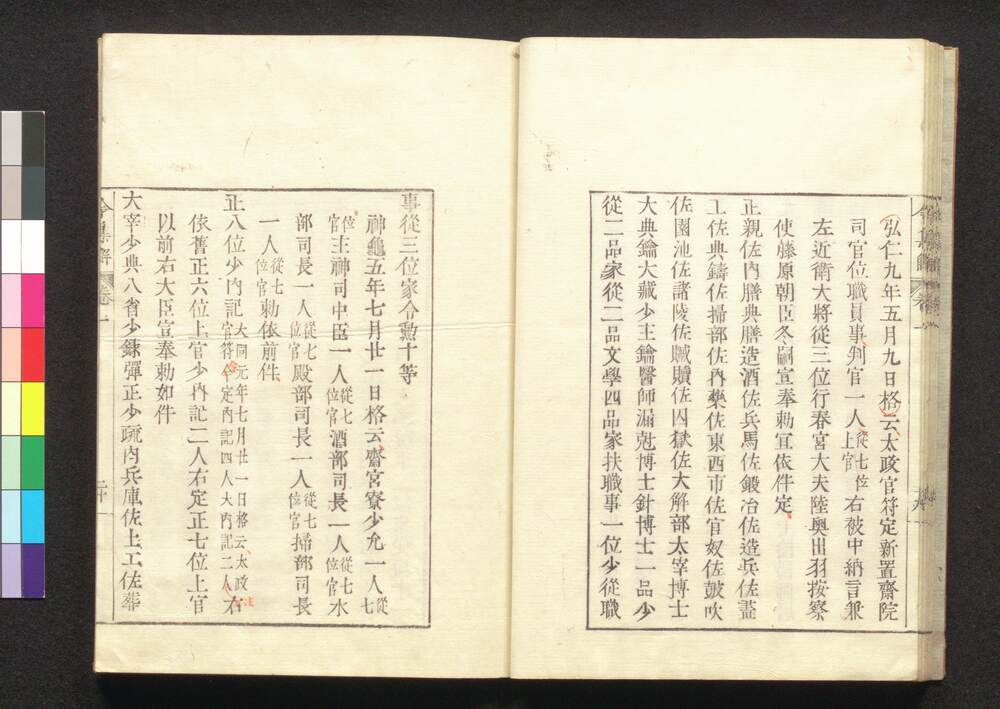 弘仁九年五月九日格云太政官符定新置齋院
司官位職員事判官一人從七位上官右被中納言兼
左近衛大將從三位行春宮大夫陸奥出羽按察
使藤原朝臣冬嗣宣奉勅宜依件定
正親佐內膳典膳造酒佐兵馬佐鍛冶佐造兵佐畫
工佐典鑄佐掃部佐內藥佐東西市佐官奴佐皷吹
佐園池佐諸陵佐贓贖佐囚獄佐大解部太宰博士
大典鑰大藏少主鑰醫師漏尅博士針博士一品少
從二品家從二品文學四品家扶職事一位少從職
事從三位家令勲十等
神龜五年七月廿一日格云齋宮寮少允一人從七
位官主神司中臣一人從七位官酒部司長一人從七位官水
部司長一人從七位官殿部司長一人從七位官掃部司長
一人從七位官勅依前件
正八位少內記大同元年七月廿一日格云太政官符今定內記四人大內記二人右
依舊正六位上官少內記二人右定正七位上官
以前右大臣宣奉勅如件
大宰少典八省少錄彈正少疏內兵庫佐土工佐葬
令集解
卷一
二十一